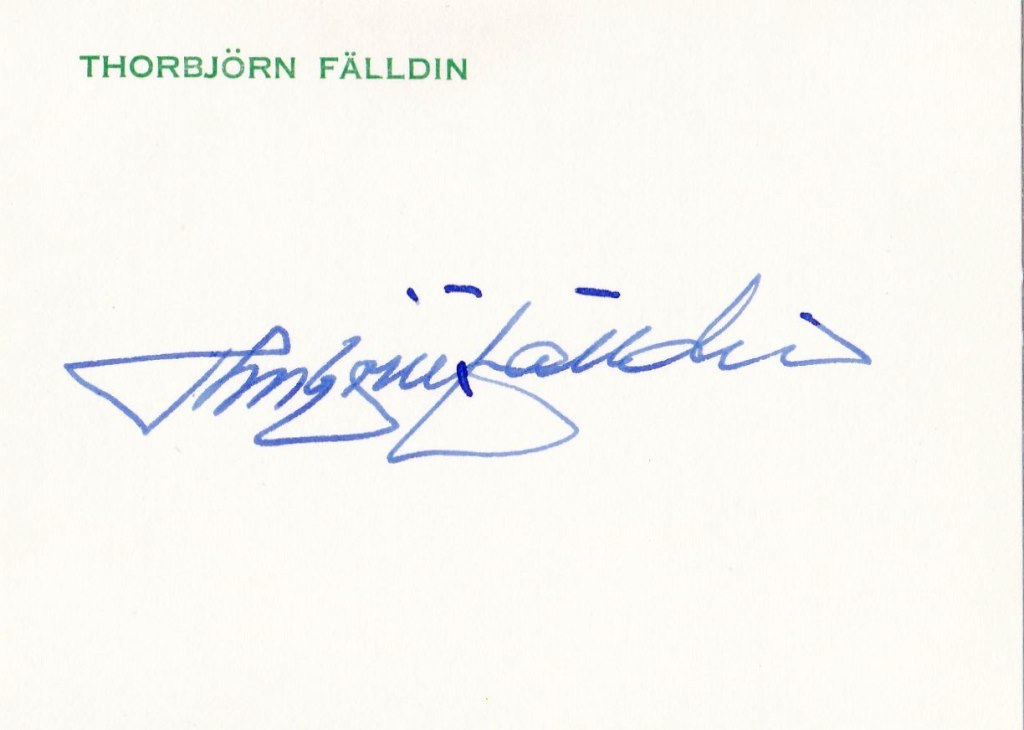 THORBJÖRN FÄLLDIN
Thorbjörn Fälldin